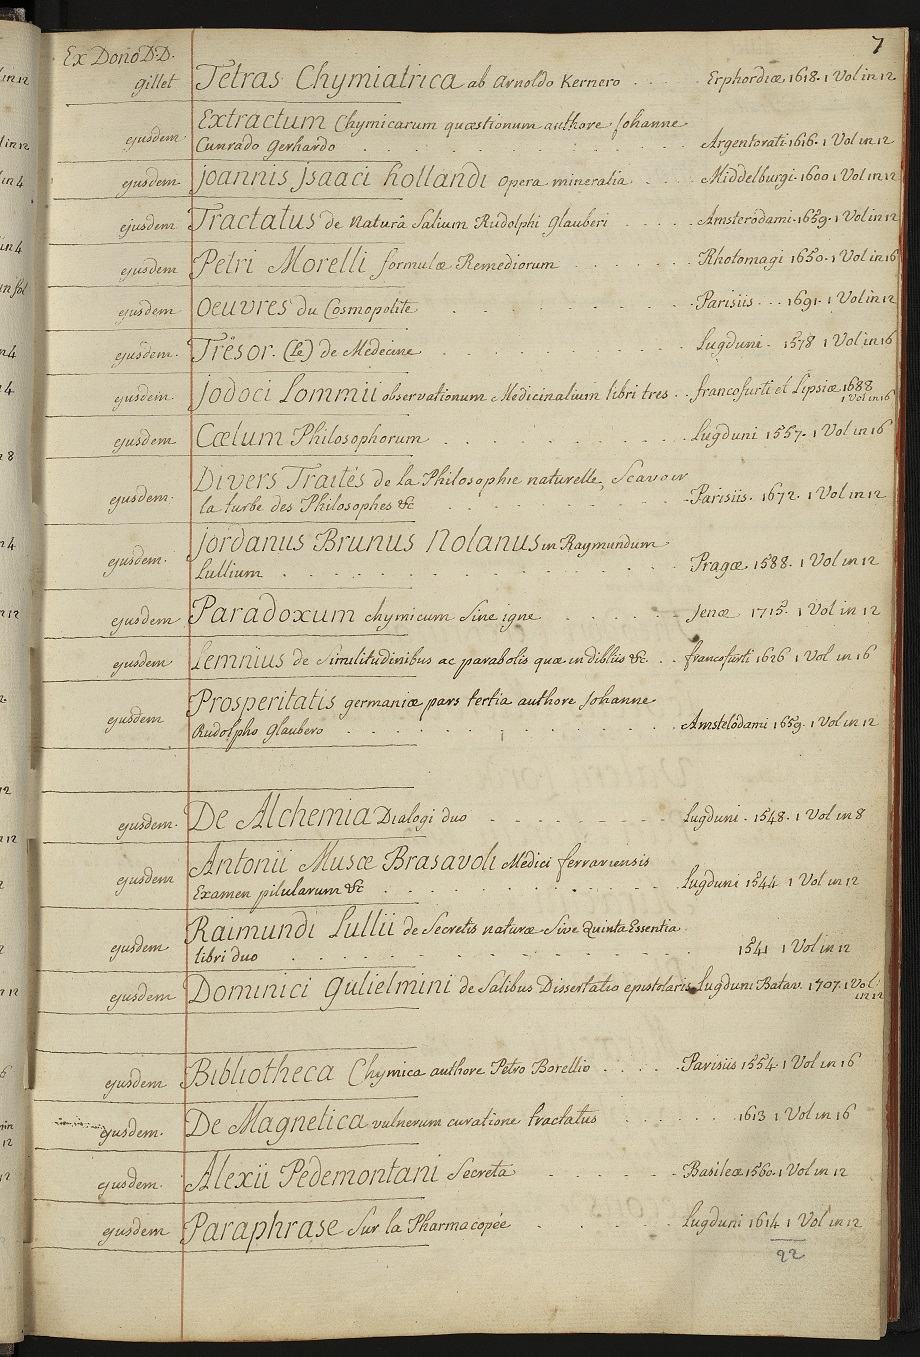 7
Ex Dono D.D.
gillet Tetras Chymiatrica ab Arnoldo Kernero . . . . Erphordiæ 1618. 1 Vol in 12
Extractum Chymicarum quæstionum authore Johanne
ejusdem Cunrado Gerhardo . . . . . . . . Argentorati. 1616. 1 Vol in 12
ejusdem Joannis Jsaaci hollandi opera mineralia . . . . Middelburgi. 1600 1 Vol in 12
ejusdem Tractatus de Naturâ Salium Rudolphi Glauberi . . . . Amsterodami. 1659. 1 Vol in 12
ejusdem Petri Morelli formulæ Remediorum . . . . . . Rhotomagi 1650. 1 Vol in 16
ejusdem Oeuvres du Cosmopolite . . . . . . . . Parisiis . . . 1691. 1 Vol in 12
ejusdem. Trésor. (Le) de Medecine . . . . . . . . Lugduni. 1578 1 Vol in 16
ejusdem. Jodoci Lommii observationum Medicinalium libri tres . . francofurti et Lipsiæ 1688
1 Vol in 16
ejusdem Cœlum Philosophorum . . . . . . . . Lugduni 1557. 1 Vol in 16
Divers Traités de la Philosophie naturelle, Scavoir
ejusdem. la turbe des Philosophes &c . . . . . . . Parisiis. 1672. 1 Vol in 12
Jordanus Brunus Nolanus in Raymundum
ejusdem. Lullium . . . . . . . . . . Pragæ 1588. 1 Vol in 12
ejusdem Paradoxum chymicum Sine igne . . . . . . Jenæ 1715. 1 Vol in 12
ejusdem Lemnius de Similitudinibus ac parabolis quæ in bibliis &c. . . francofurti 1626 1 Vol in 16
Prosperitatis germaniæ pars tertia authore Johanne
ejusdem Rudolpho Glaubero . . . . . . . . Amstelodami 1659. 1 Vol in 12
ejusdem. De Alchemia Dialogi duo . . . . . . . Lugduni. 1548. 1 Vol in 8
Antonii Musæ Brasavoli Medici ferrariensis
ejusdem Examen pilularum &c . . . . . . . . Lugduni 1544 1 Vol in 12
Raimundi Lullii de Secretis naturæ Sive Quinta Essentia
ejusdem libri duo . . . . . . . . . . 1541 1 Vol in 12
ejusdem Dominici Gulielmini de Salibus Dissertatio epistolaris Lugduni Batav. 1707. 1 Vol
in 12
ejusdem Bibliotheca Chymica authore Petro Borellio . . . . Parisiis 1554. 1 Vol in 16
ejusdem. De Magnetica vulnerum curatione tractatus . . . . . . 1613 1 Vol in 16
ejusdem. Alexii Pedemontani Secreta . . . . . . Basileæ 1560. 1 Vol in 12
ejusdem Paraphrase Sur la Pharmacopée . . . . . Lugduni 1614 1 Vol in 12
22